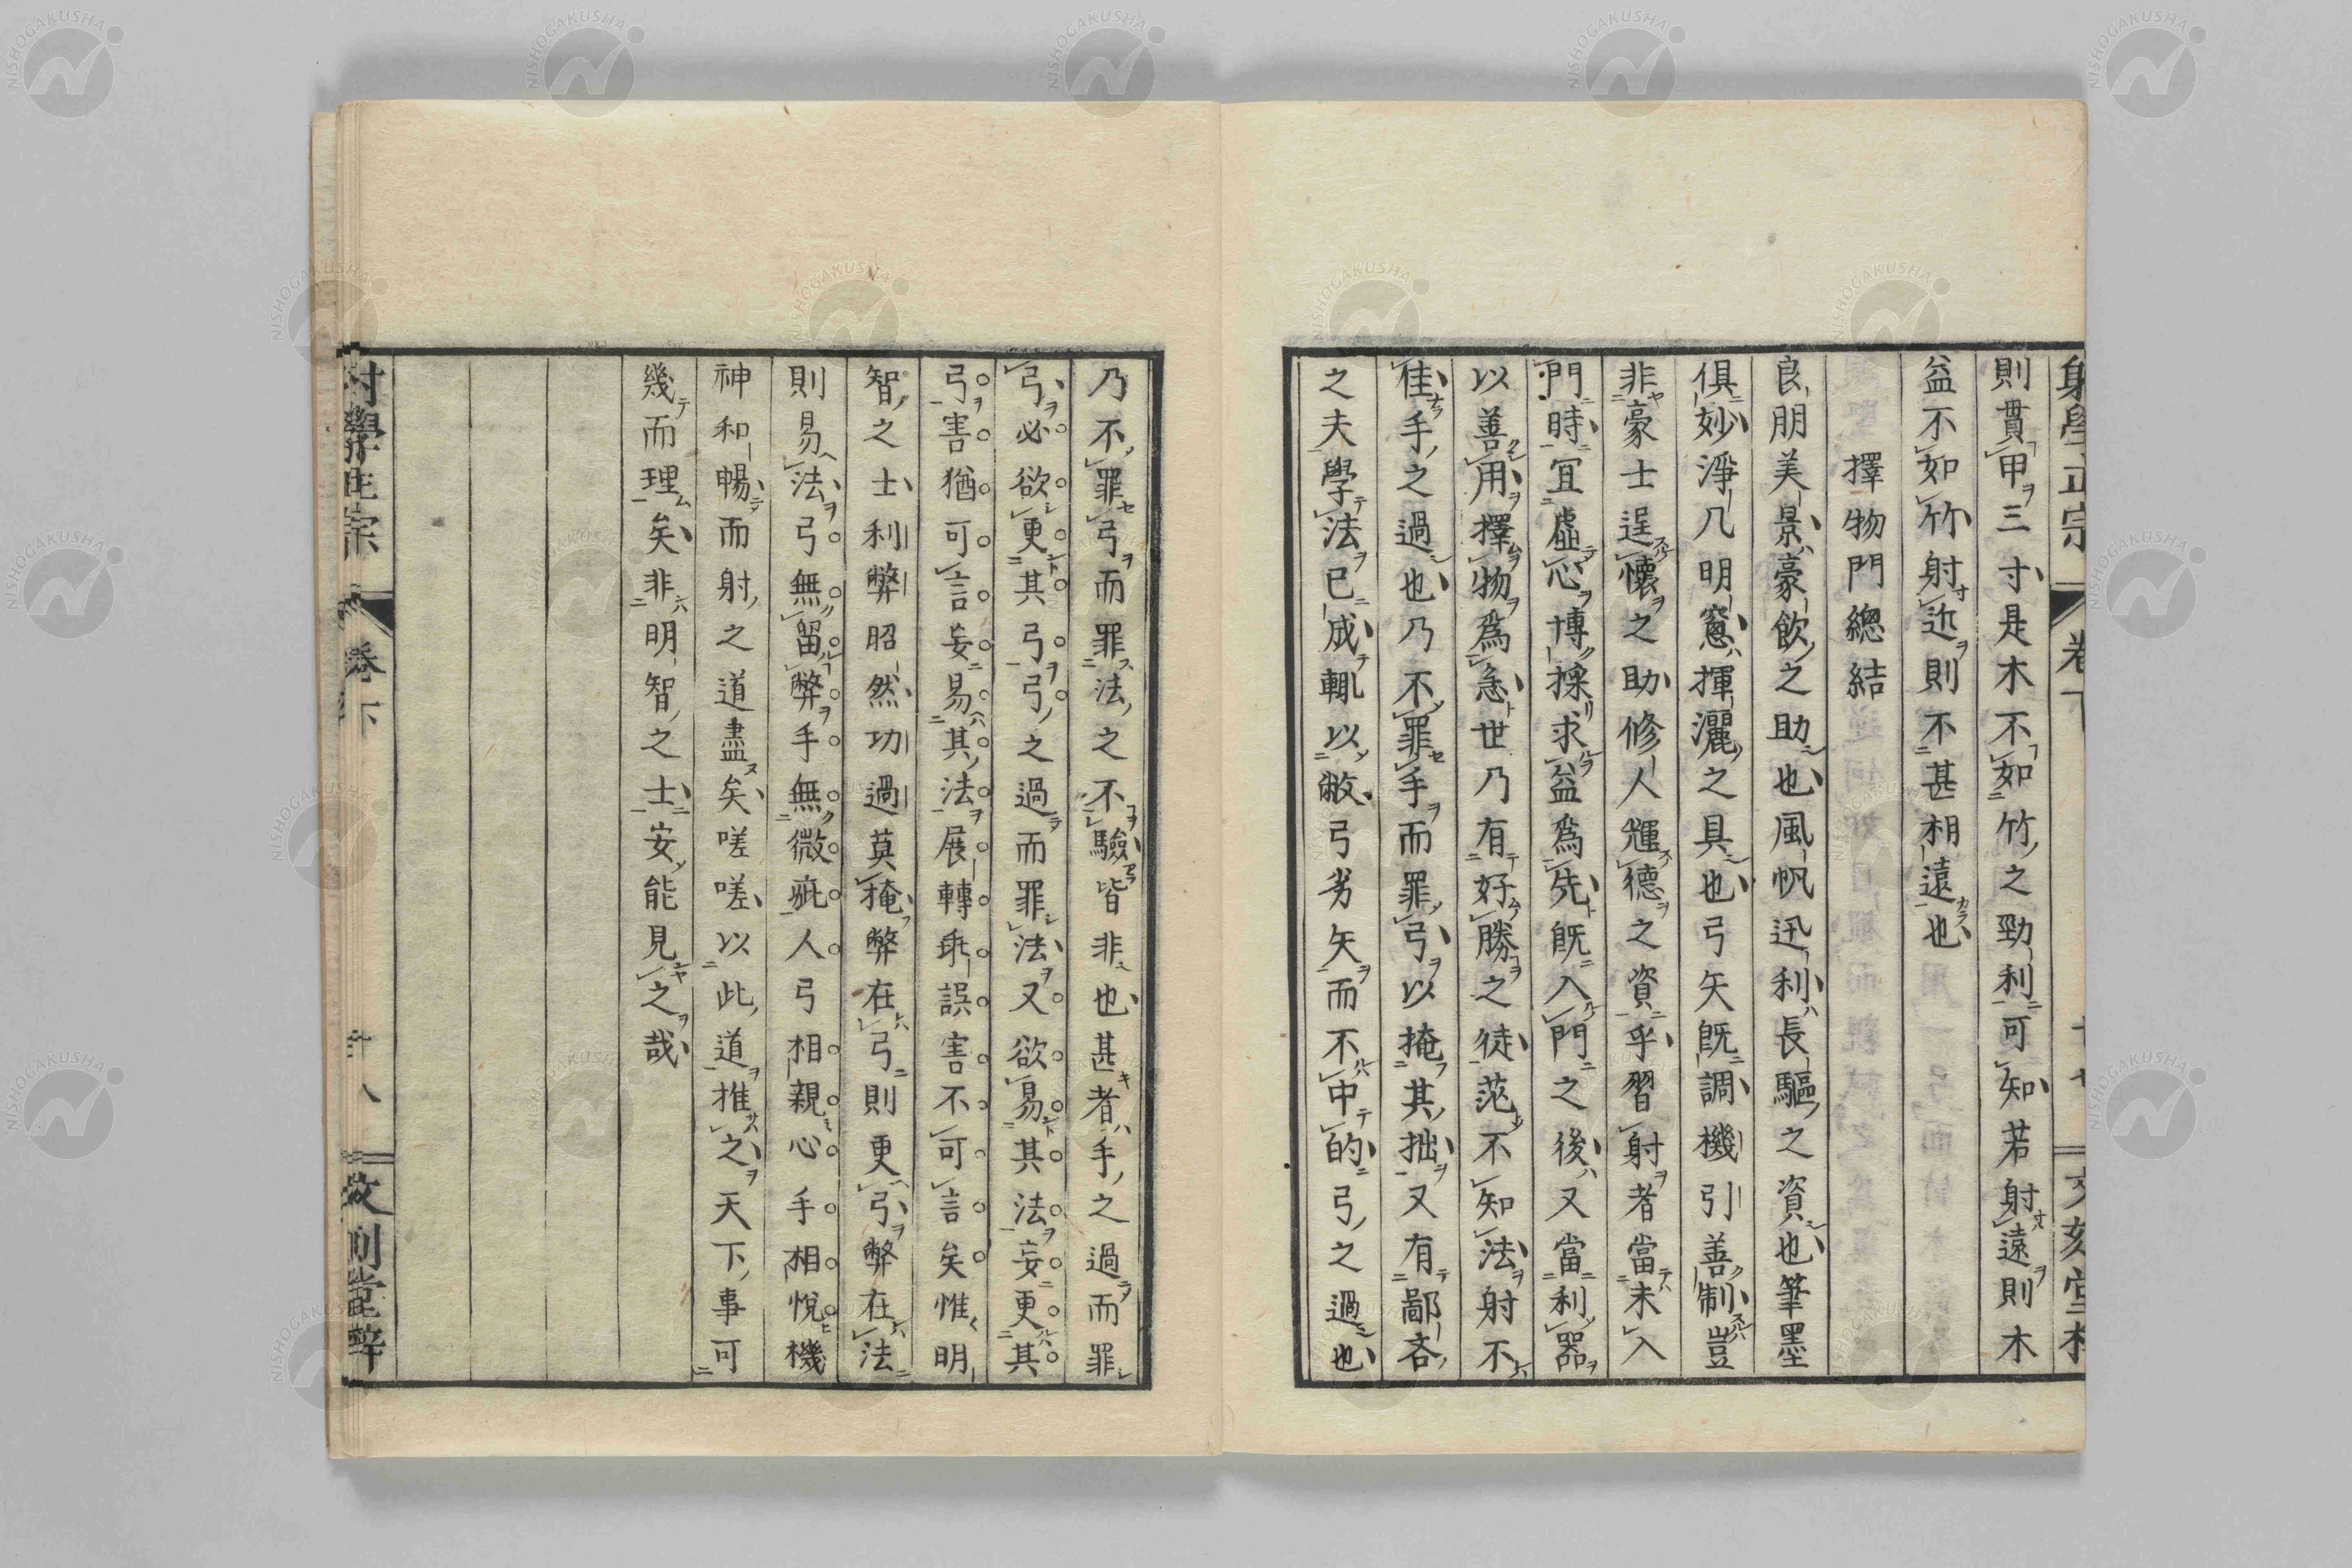 則貫甲三寸是木不如竹之勁利可知若射遠則木
益不如竹射近則不甚相遠也
擇物門總結
良朋美景豪飲之助也風帆迅利長驅之資也筆墨
俱妙淨几明窻揮灑之具也弓矢旣調機引善制豈
非豪士逞懷之助修人輝德之資乎習射者當未入
門時宜虛心博採求益爲先旣入門之後又當利器
以善用擇物爲急世乃有好勝之徒茫不知法射不
佳手之過也乃不罪手而罪弓以掩其拙又有鄙吝
之夫學法已成輒以敝弓劣矢而不中的弓之過也
乃不罪弓而罪法之不驗皆非也甚者手之過而罪
弓必欲更其弓弓之過而罪法又欲易其法妄更其
弓害猶可言妄易其法展轉乖誤害不可言矣惟明
智之士利弊昭然功過莫掩弊在弓則更弓弊在法
則易法弓無留弊手無微疵人弓相親心手相悅機
神和暢而射之道盡矣嗟嗟以此道推之天下事可
幾而理矣非明智之士安能見之哉
射學正宗
卷下
十八